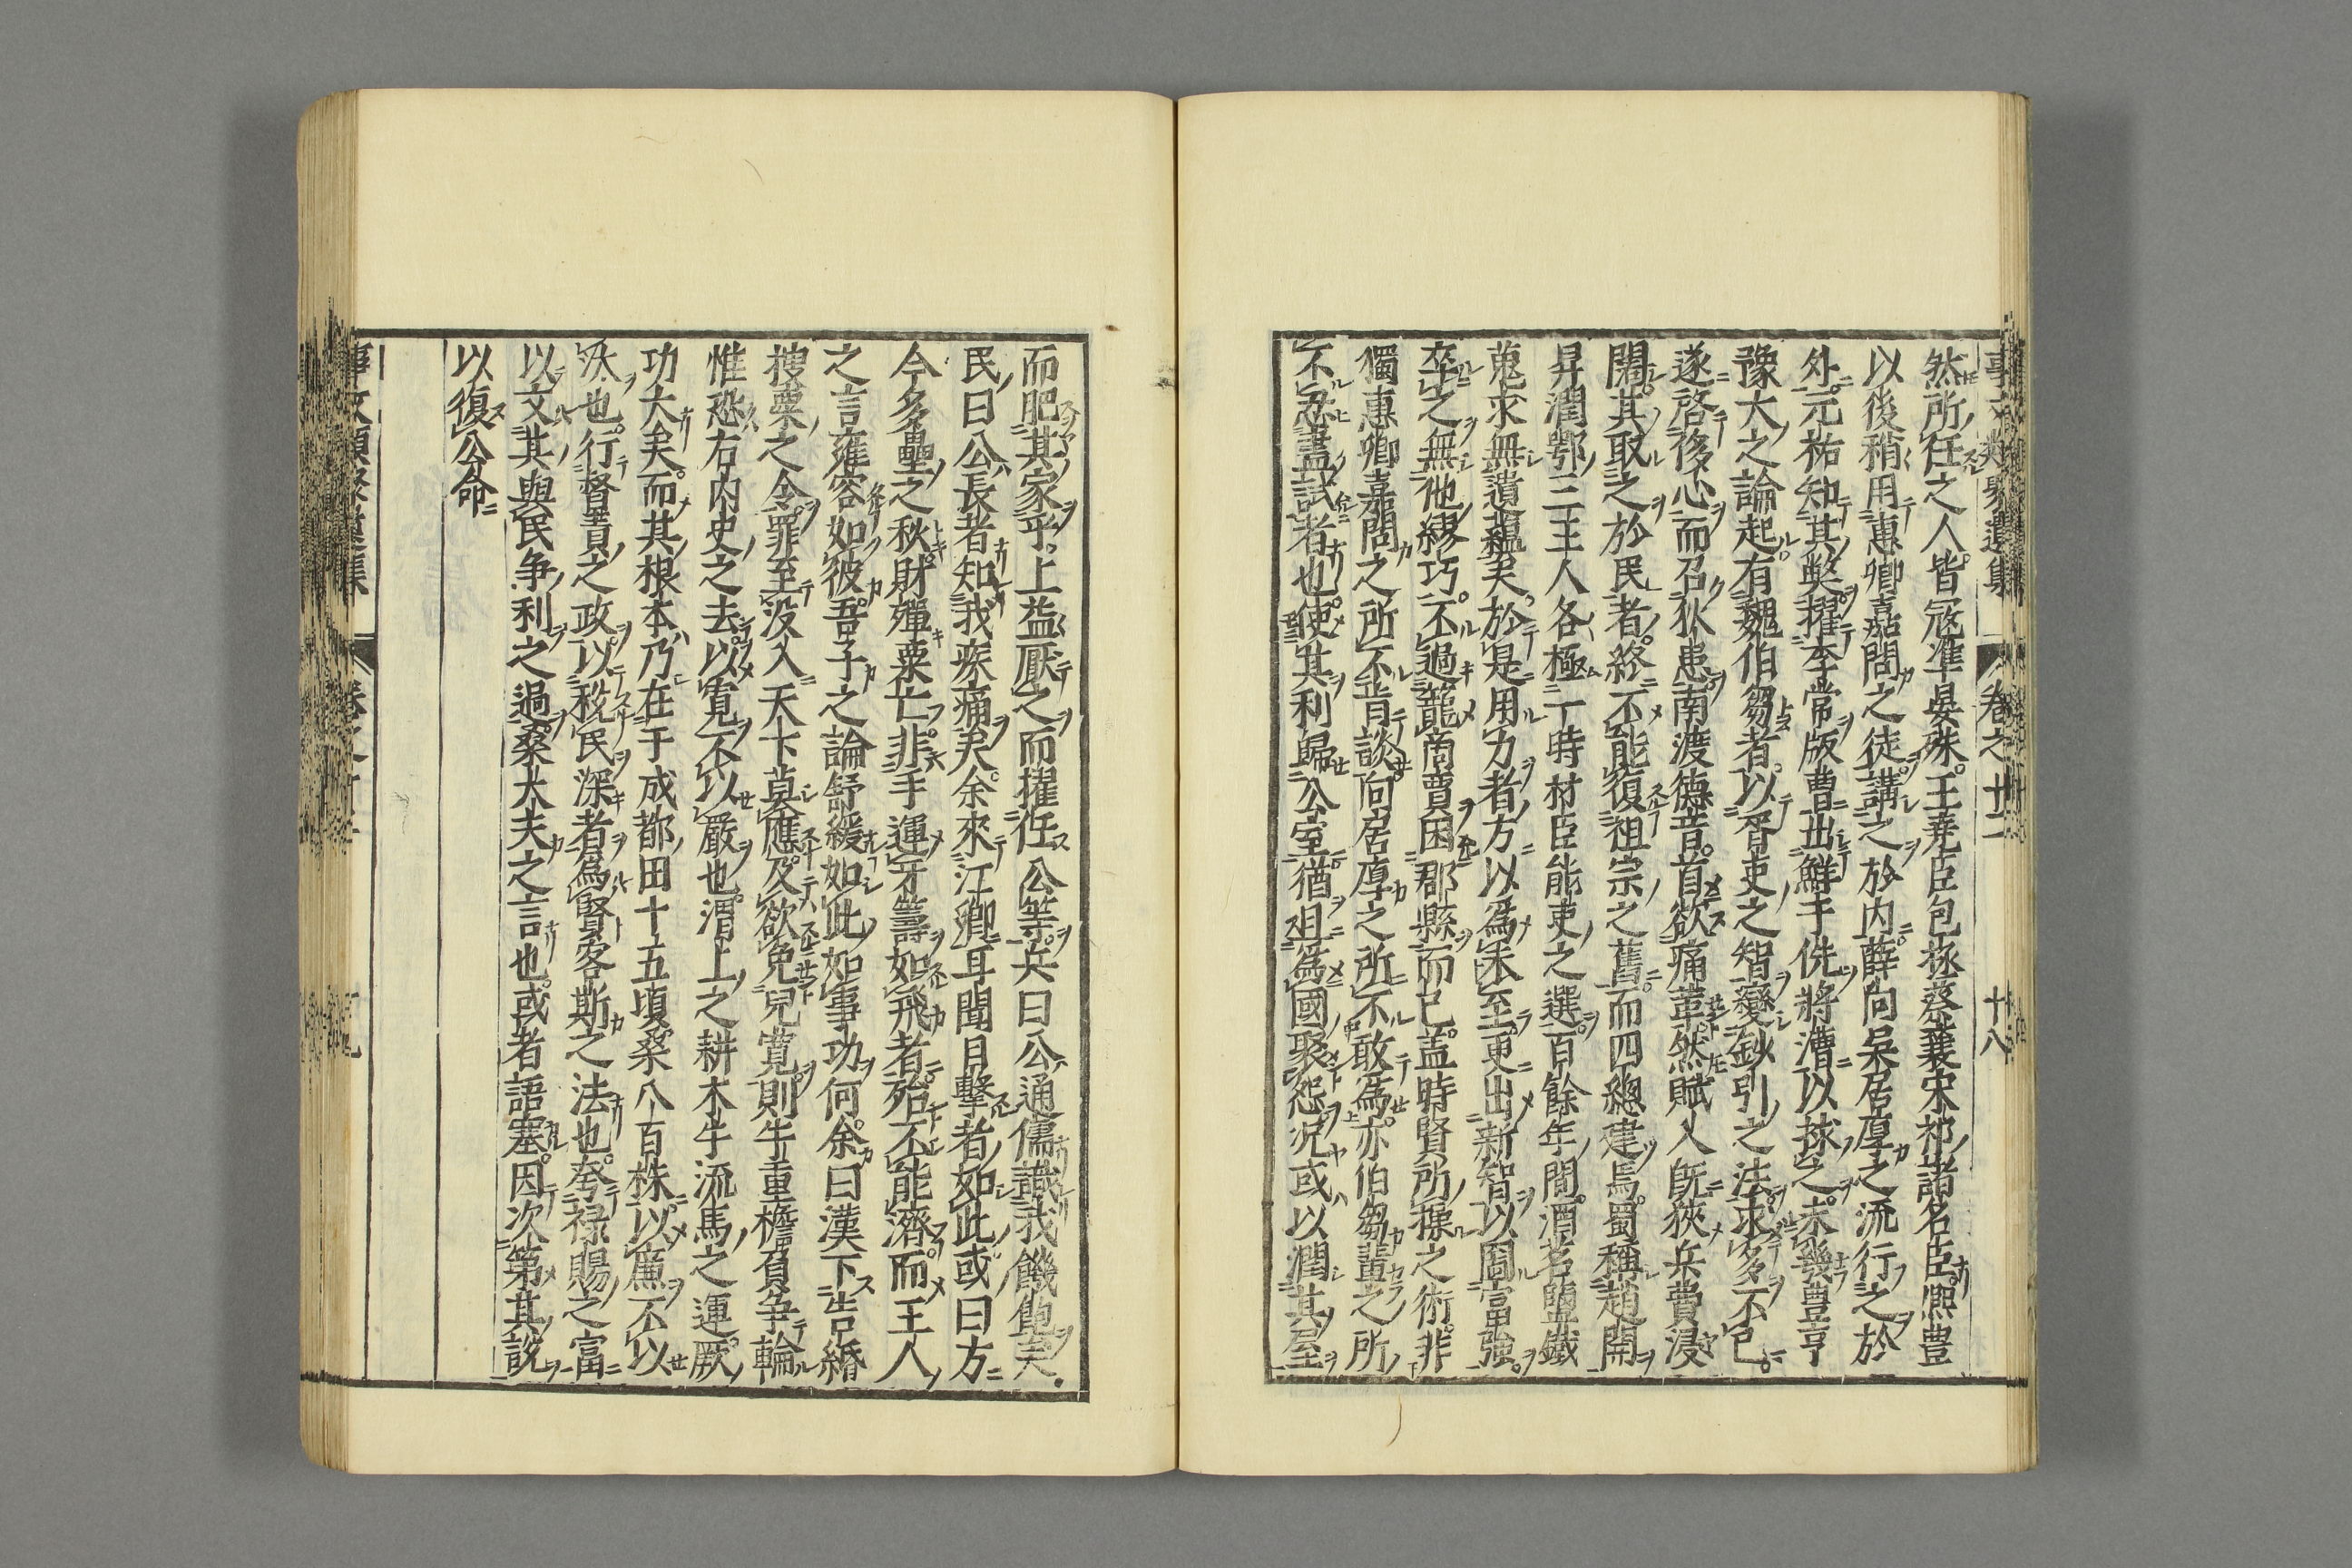 事文類聚遺集 卷之廿二 十八
然所任之人皆冦準晏殊王堯臣包拯蔡襄宋祁諸名臣熈豊
以後稍用惠卿嘉問之徒講之於内薛向吴居厚之流行之於
外元祐知其獘擢李常版曹出鮮于侁將漕以捄之未幾豊亨
豫大之論起有魏伯芻者以胥吏之智變鈔引之法求多不已
遂啓侈心而召狄患南渡德音首欲痛革然賦入旣狹兵費浸
闊其取之於民者終不能復祖宗之舊而四緫建焉蜀稱趙開
昇潤鄂三王人各極一時材臣能吏之選百餘年間酒茗鹽鐵
蒐求無遺蘊矣於是用力者方以爲未至更出新智以圖富強
卒之無他繆巧不過籠商賈困郡縣而已盖時賢所操之術非
獨惠卿嘉問之所不肯談向居厚之所不敢爲亦伯芻輩之所
不忍盡試者也使其利歸公室猶且爲國聚怨况或以潤其屋
而肥其家乎上益厭之而擢任公等兵曰公通儒識我饑飽矣
民曰公長者知我疾痛矣余來江鄉耳聞目擊者如此或曰方
今多壘之秋財殫粟亡非手運牙籌如飛者殆不能濟而王人
之言雍容如彼吾子之論舒緩如此如事功何余曰漢下告緡
搜粟之令罪至没入天下莫應及欲免兒寛則牛重檐負争輸
惟恐右内史之去以寛不以嚴也渭上之耕木牛流馬之運厥
功大矣而其根本乃在于成都田十五頃桑八百株以廉不以
汰也行督責之政以税民深者爲賢客斯之法也発禄賜之富
以文其與民争利之過桑大夫之言也或者語塞因次第其說
以復公命
事文類聚遺集 卷之